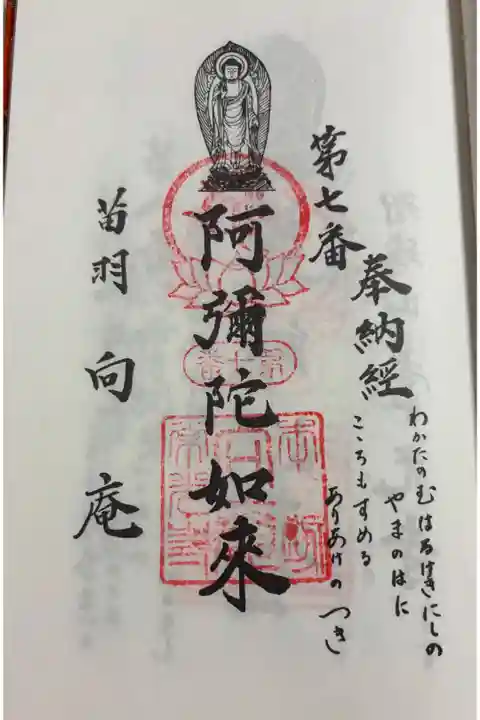 奉納經
第七番
わかたのむはるけきにしの
やまのはに
こころもすめる
ありあけのつき
阿彌陀如來
苗羽
向
庵